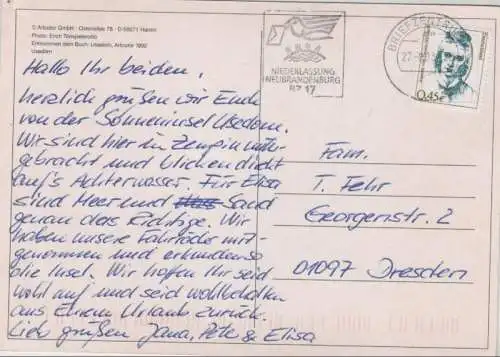 © Artcolor GmbH · Ostenallee 78 · D-59071 Hamm
Photo: Erich Tomschi
Entnommen dem Buch: Usedom, Artcolor 1992
Usedom
Hallo Ihr beiden,
herzlich grüßen wir Euch
von der Sonneninsel Usedom.
Wir sind hier in Zempin unter-
gebracht und blicken dicht
auf's Achterwasser. Für Elisa
sind Meer und Sand
genau das Richtige. Wir
haben unsere Fahrräder mit-
genommen und erkunden so
die Insel. Wir hoffen Ihr seid
wohl auf und seid wohlbehalten
aus Eurem Urlaub zurück.
Lieb grüßen Jana, Pete & Elisa
NIEDERLASSUNG
NEUBRANDENBURG
BZ 17
BRIEFZENTRUM
0,45€
Fam.
T. Fehr
Georgenstr. 2
01097 Dresden